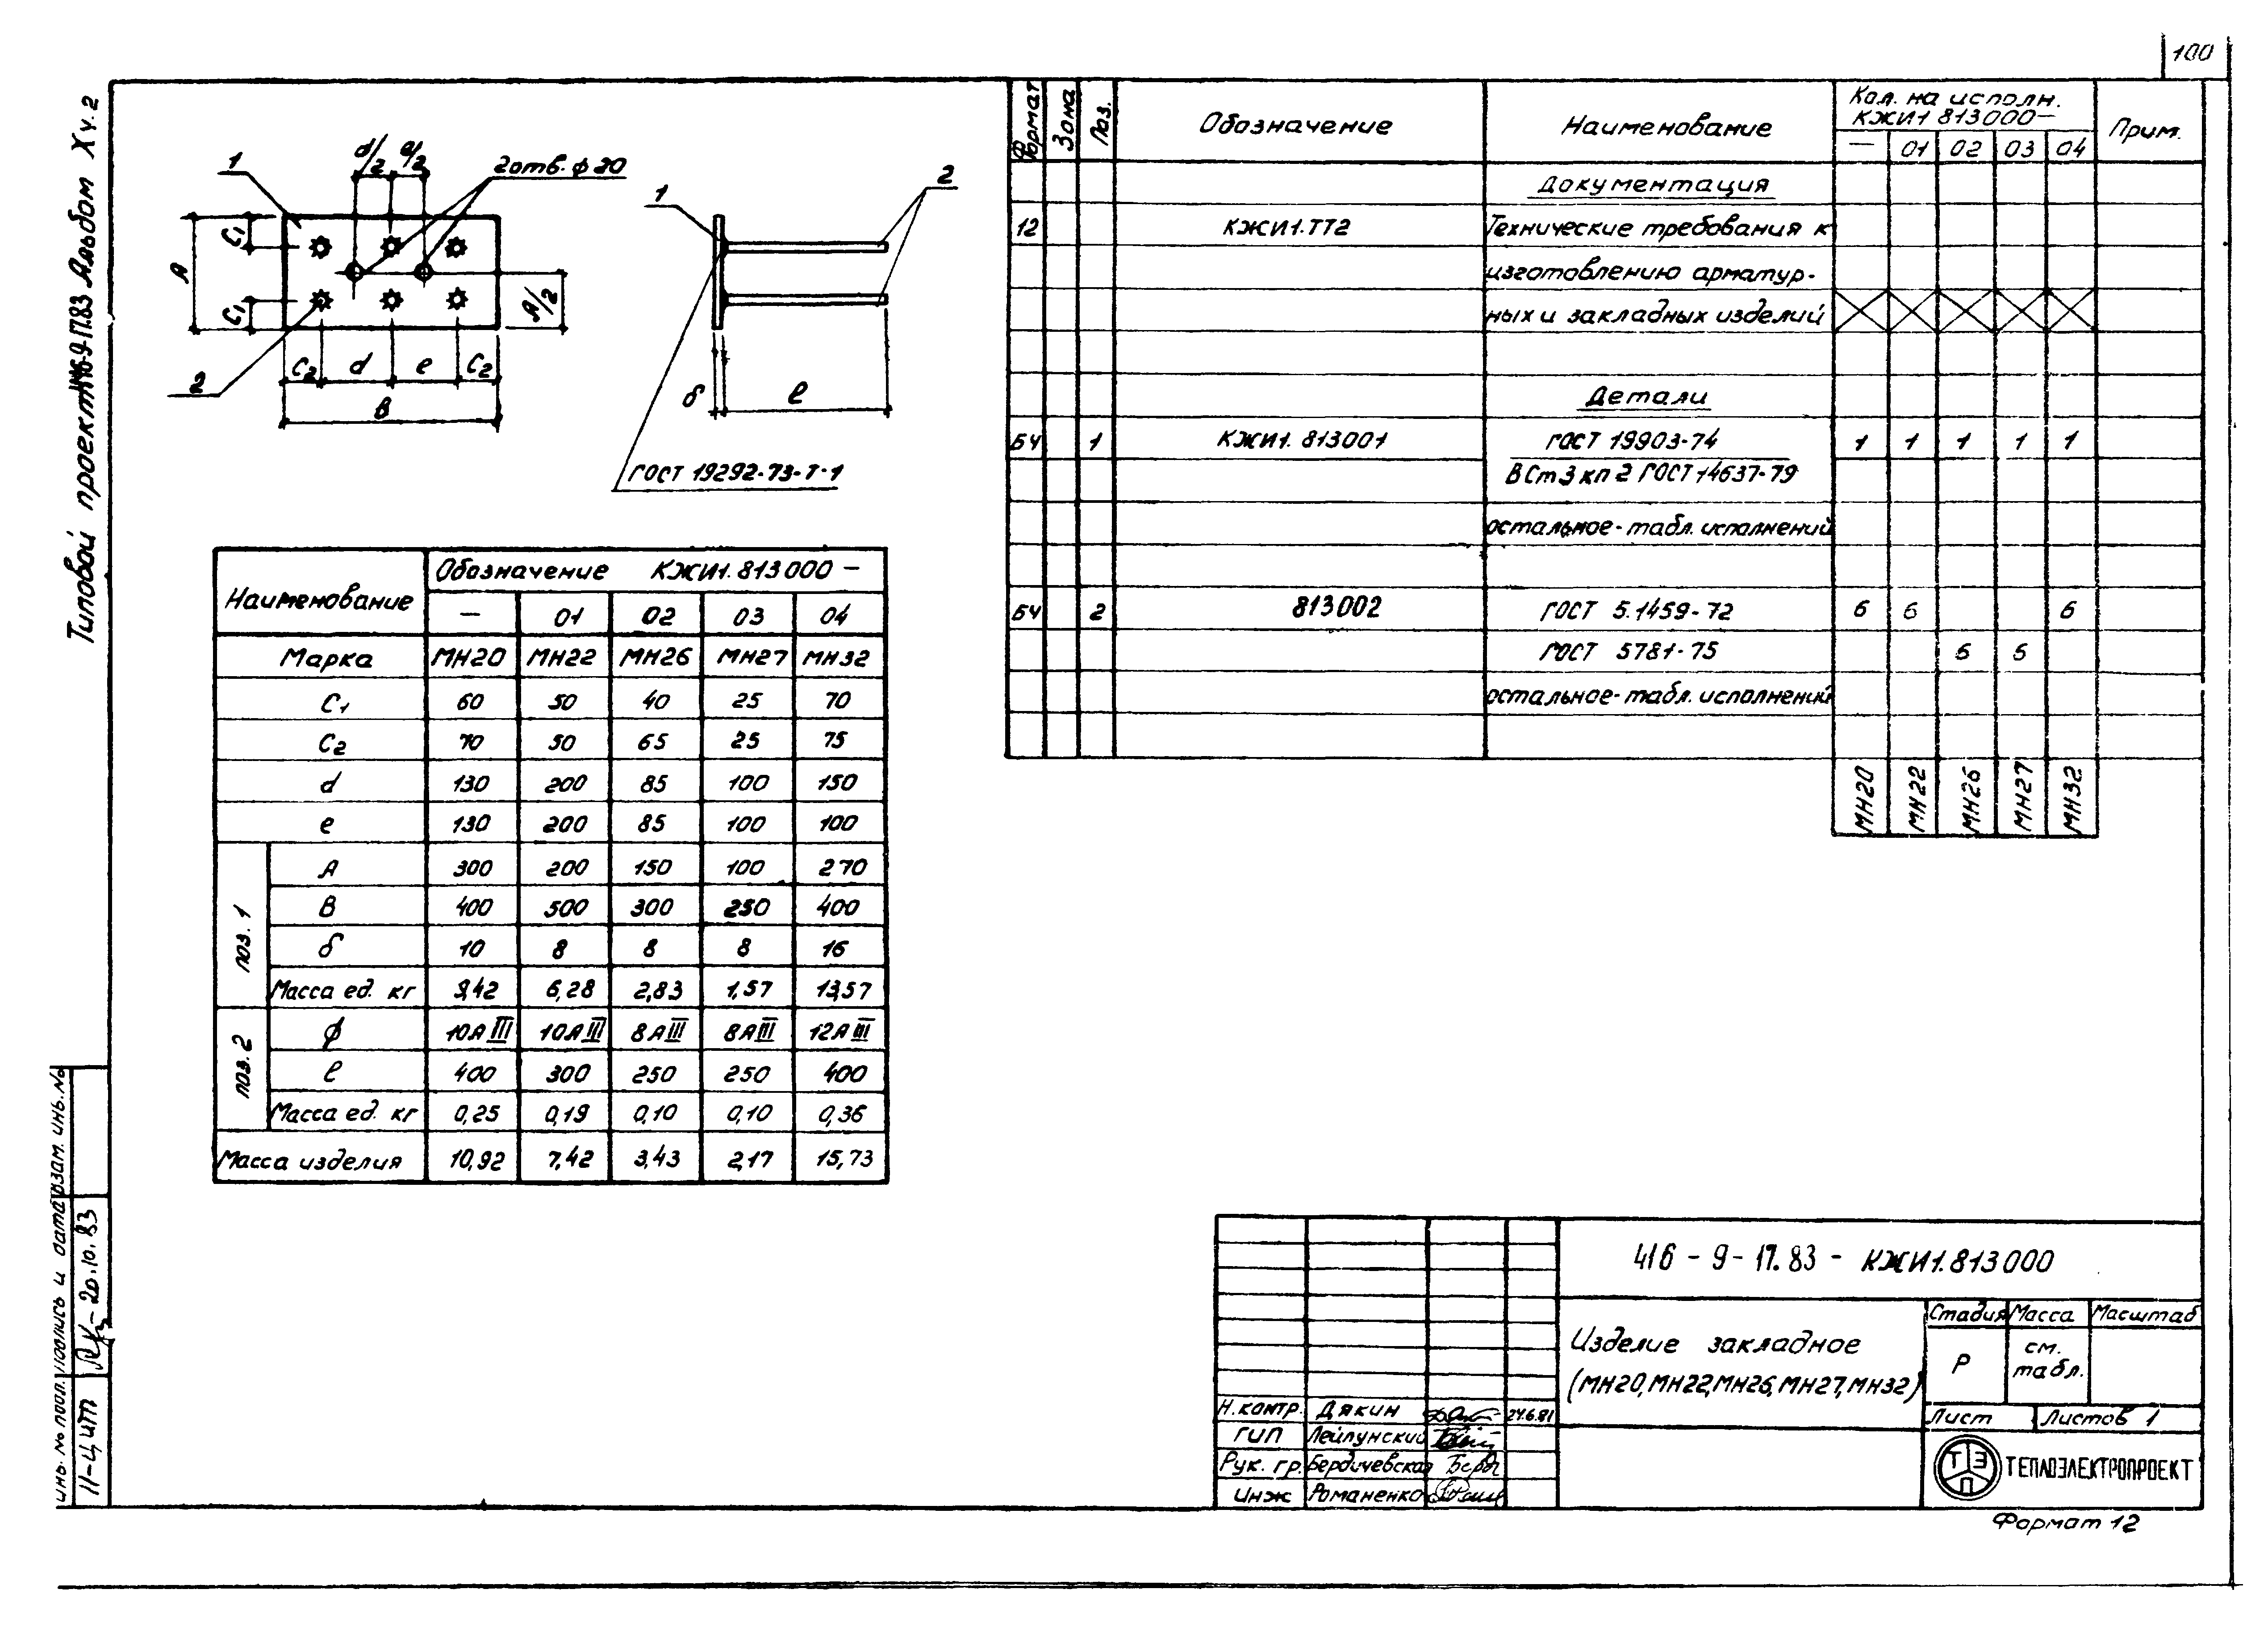 100
Типовой проект 416-9-17.83 Альбом X ч. 2
1
d/2
e/2
2 отв. ф 20
C1
A
C1
A/2
C2
d
e
C2
B
2
1
2
δ
ℓ
ГОСТ 19292-73-Т-1
Наименование
Обозначение КЖИ1.813000 —
— 01 02 03 04
Марка МН20 МН22 МН26 МН27 МН32
C1 60 50 40 25 70
C2 70 50 65 25 75
d 130 200 85 100 150
e 130 200 85 100 100
поз. 1
A 300 200 150 100 270
B 400 500 300 250 400
δ 10 8 8 8 16
Масса ед. кг 9,42 6,28 2,83 1,57 13,57
поз. 2
ф 10АIII 10АIII 8АIII 8АIII 12АIII
ℓ 400 300 250 250 400
Масса ед. кг 0,25 0,19 0,10 0,10 0,36
Масса изделия 10,92 7,42 3,43 2,17 15,73
Формат Зона Поз. Обозначение Наименование
Кол. на исполн.
КЖИ1 813000—
— 01 02 03 04
Прим.
Документация
12 КЖИ1.ТТ2 Технические требования к
изготовлению арматур-
ных и закладных изделий
Детали
БЧ 1 КЖИ1. 813001 ГОСТ 19903-74 1 1 1 1 1
ВСт3кп2 ГОСТ 14637-79
остальное- табл. исполнений
БЧ 2 813002 ГОСТ 5.1459-72 6 6 6
ГОСТ 5781-75 6 6
остальное- табл. исполнений
МН20 МН22 МН26 МН27 МН32
416 - 9 - 17.83 - КЖИ1.813000
Изделие закладное
(МН20,МН22,МН26,МН27,МН32)
Стадия Масса Масштаб
Р
см.
табл.
Лист Листов 1
Н.контр. Дякин 24.6.81
ГИП Лейпунский
Рук. гр. Бердичевская
Инж Романенко
ТЭП
ТЕПЛОЭЛЕКТРОПРОЕКТ
Формат 12
Инв. № подл. Подпись и дата Взам. инв. №
11-ЦИТ
20.10.83